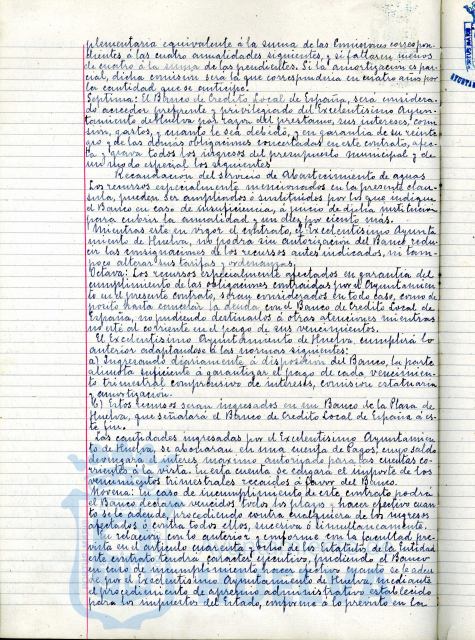 plementaria equivalente á la suma de las Comisiones correspon-
dientes, á las cuatro anualidades siguientes, y si faltaren menos
de cuatro á la suma de las pendientes. Si la amortización es par-
cial, dicha comisión será la que correspondería en cuatro años por
la cantidad que se anticipe.
Septima: El Banco de Credito Local de España, será considera-
do acreedor preferente y privilegiado del Excelentisimo Ayun-
tamiento de Huelva por razon del prestamo, sus intereses, comi-
sion, gastos, y cuanto le sea debido, y en garantia de su reinte
gro y de las demas obligaciones concertadas en este contrato, afec-
ta y grava todos los ingresos del presupuesto municipal y de
un modo especial los siguientes
Recaudacion del servicio de Abastecimiento de aguas
Los recursos especialmente mencionados en la presente clau-
sula, pueden ser ampliados ó sustituidos por los que indique
el Banco en caso de insuficiencia, á juicio de dicha institucion
para cubrir la anualidad y un diez por ciento más.
Mientras esté en vigor el contrato, el Excelentisimo Ayunta
miento de Huelva, no podrá sin autorizacion del Banco redu-
cir las consignaciones de los recursos antes indicados, ni tam-
poco alterar sus tarifas y ordenanzas.
Octava: Los recursos especialmente afectados en garantia del
cumplimiento de las obligaciones contraidas por el Ayuntamien-
to en el presente contrato, serán considerados en todo caso, como de-
posito hasta cancelar la deuda con el Banco de Credito Local de
España, no pudiendo destinarlos á otras atenciones mientras
no esté al corriente en el pago de sus vencimientos.
El Excelentisimo Ayuntamiento de Huelva, cumplirá lo
anterior adaptandose á las normas siguientes:
a) Ingresando diariamente á disposicion del Banco, la parte
alicuota suficiente á garantizar el pago de cada vencimien-
to trimestral comprensivo de intereses, comision estatuaria
y amortización.
b) Estos ingresos serán ingresados en un Banco de la Plaza de
Huelva, que señalará el Banco de Credito Local de España á es-
te fin.
Las cantidades ingresadas por el Excelentisimo Ayuntamien
to de Huelva, se abonaran en una cuenta de Pagos, cuyo saldo
devengará el interes maximo autorizado para las cuentas co-
rrientes á la vista. En esta cuenta se cargará el importe de los
vencimientos trimestrales recaidos á favor del Banco.
Novena: En caso de incumplimiento de este contrato podrá
el Banco declarar vencidos todos los plazos y hacer efectivo cuan-
to se le adeude, procediendo contra cualquiera de los ingresos
afectados ó contra todos ellos, sucesiva ó simultaneamente.
En relacion, con lo anterior y conforme con la facultad pre-
vista en el articulo cuarenta y ocho de los Estatutos de la Entidad
este contrato tendrá caracter ejecutivo, pudiendo el Banco
en caso de incumplimiento hacer efectivo cuanto se le adeu
de por el Excelentisimo Ayuntamiento de Huelva mediante
el procedimiento de apremio administrativo establecido
para los impuestos del Estado, conforme á lo previsto en la